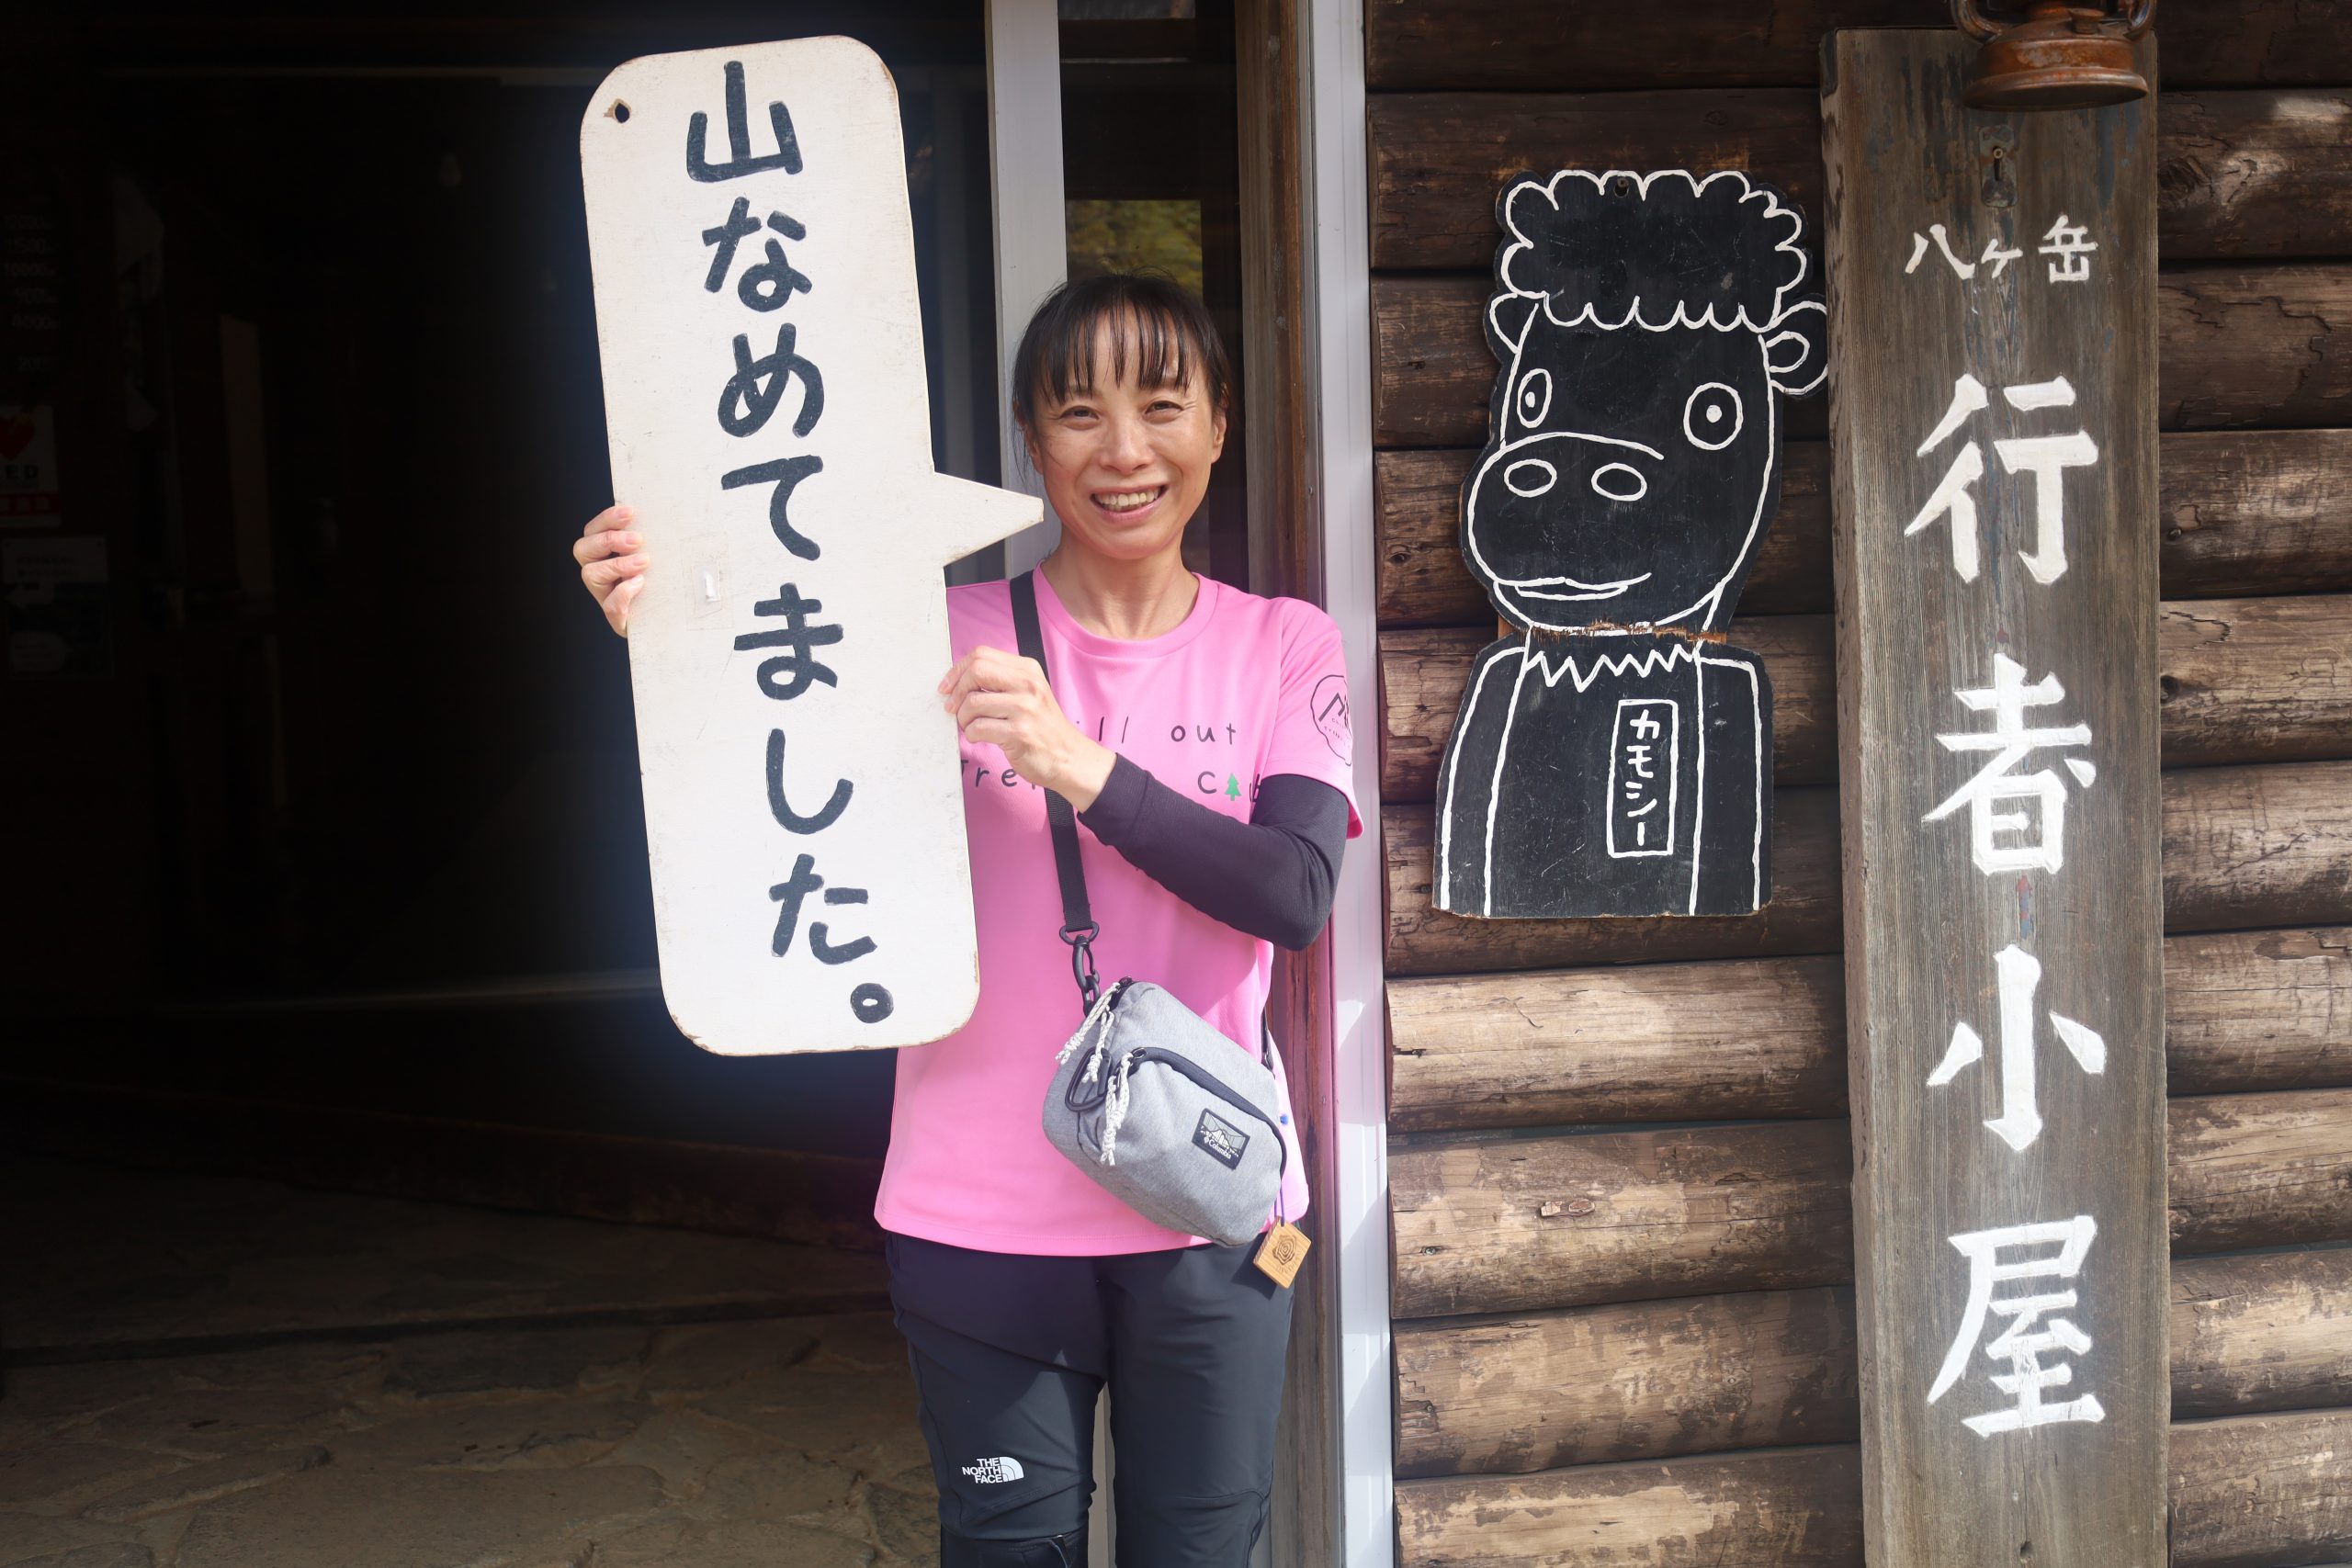 山なめてました。
カモシー
八ヶ岳
行者小屋
ill out
Tre
THE
NORTH
FACE
Columbia